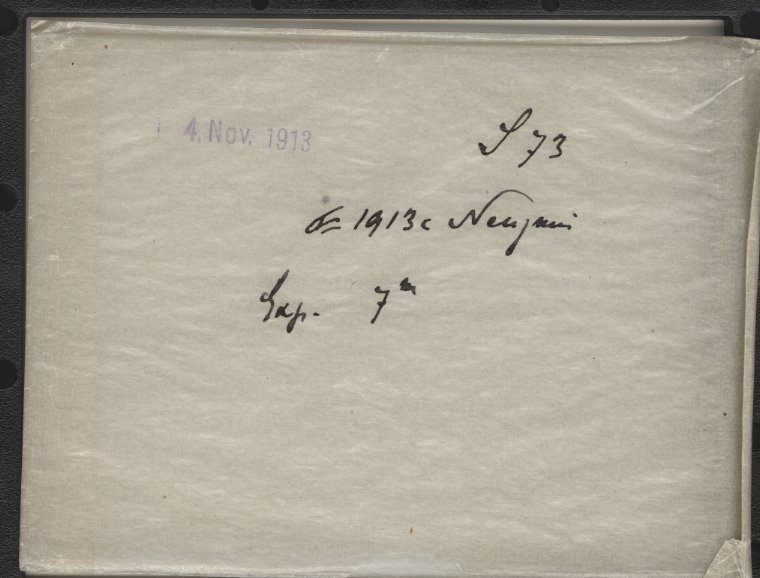 4. Nov. 1913
S 73
☄ 1913c Neujmin
Exp. 7ᵐ